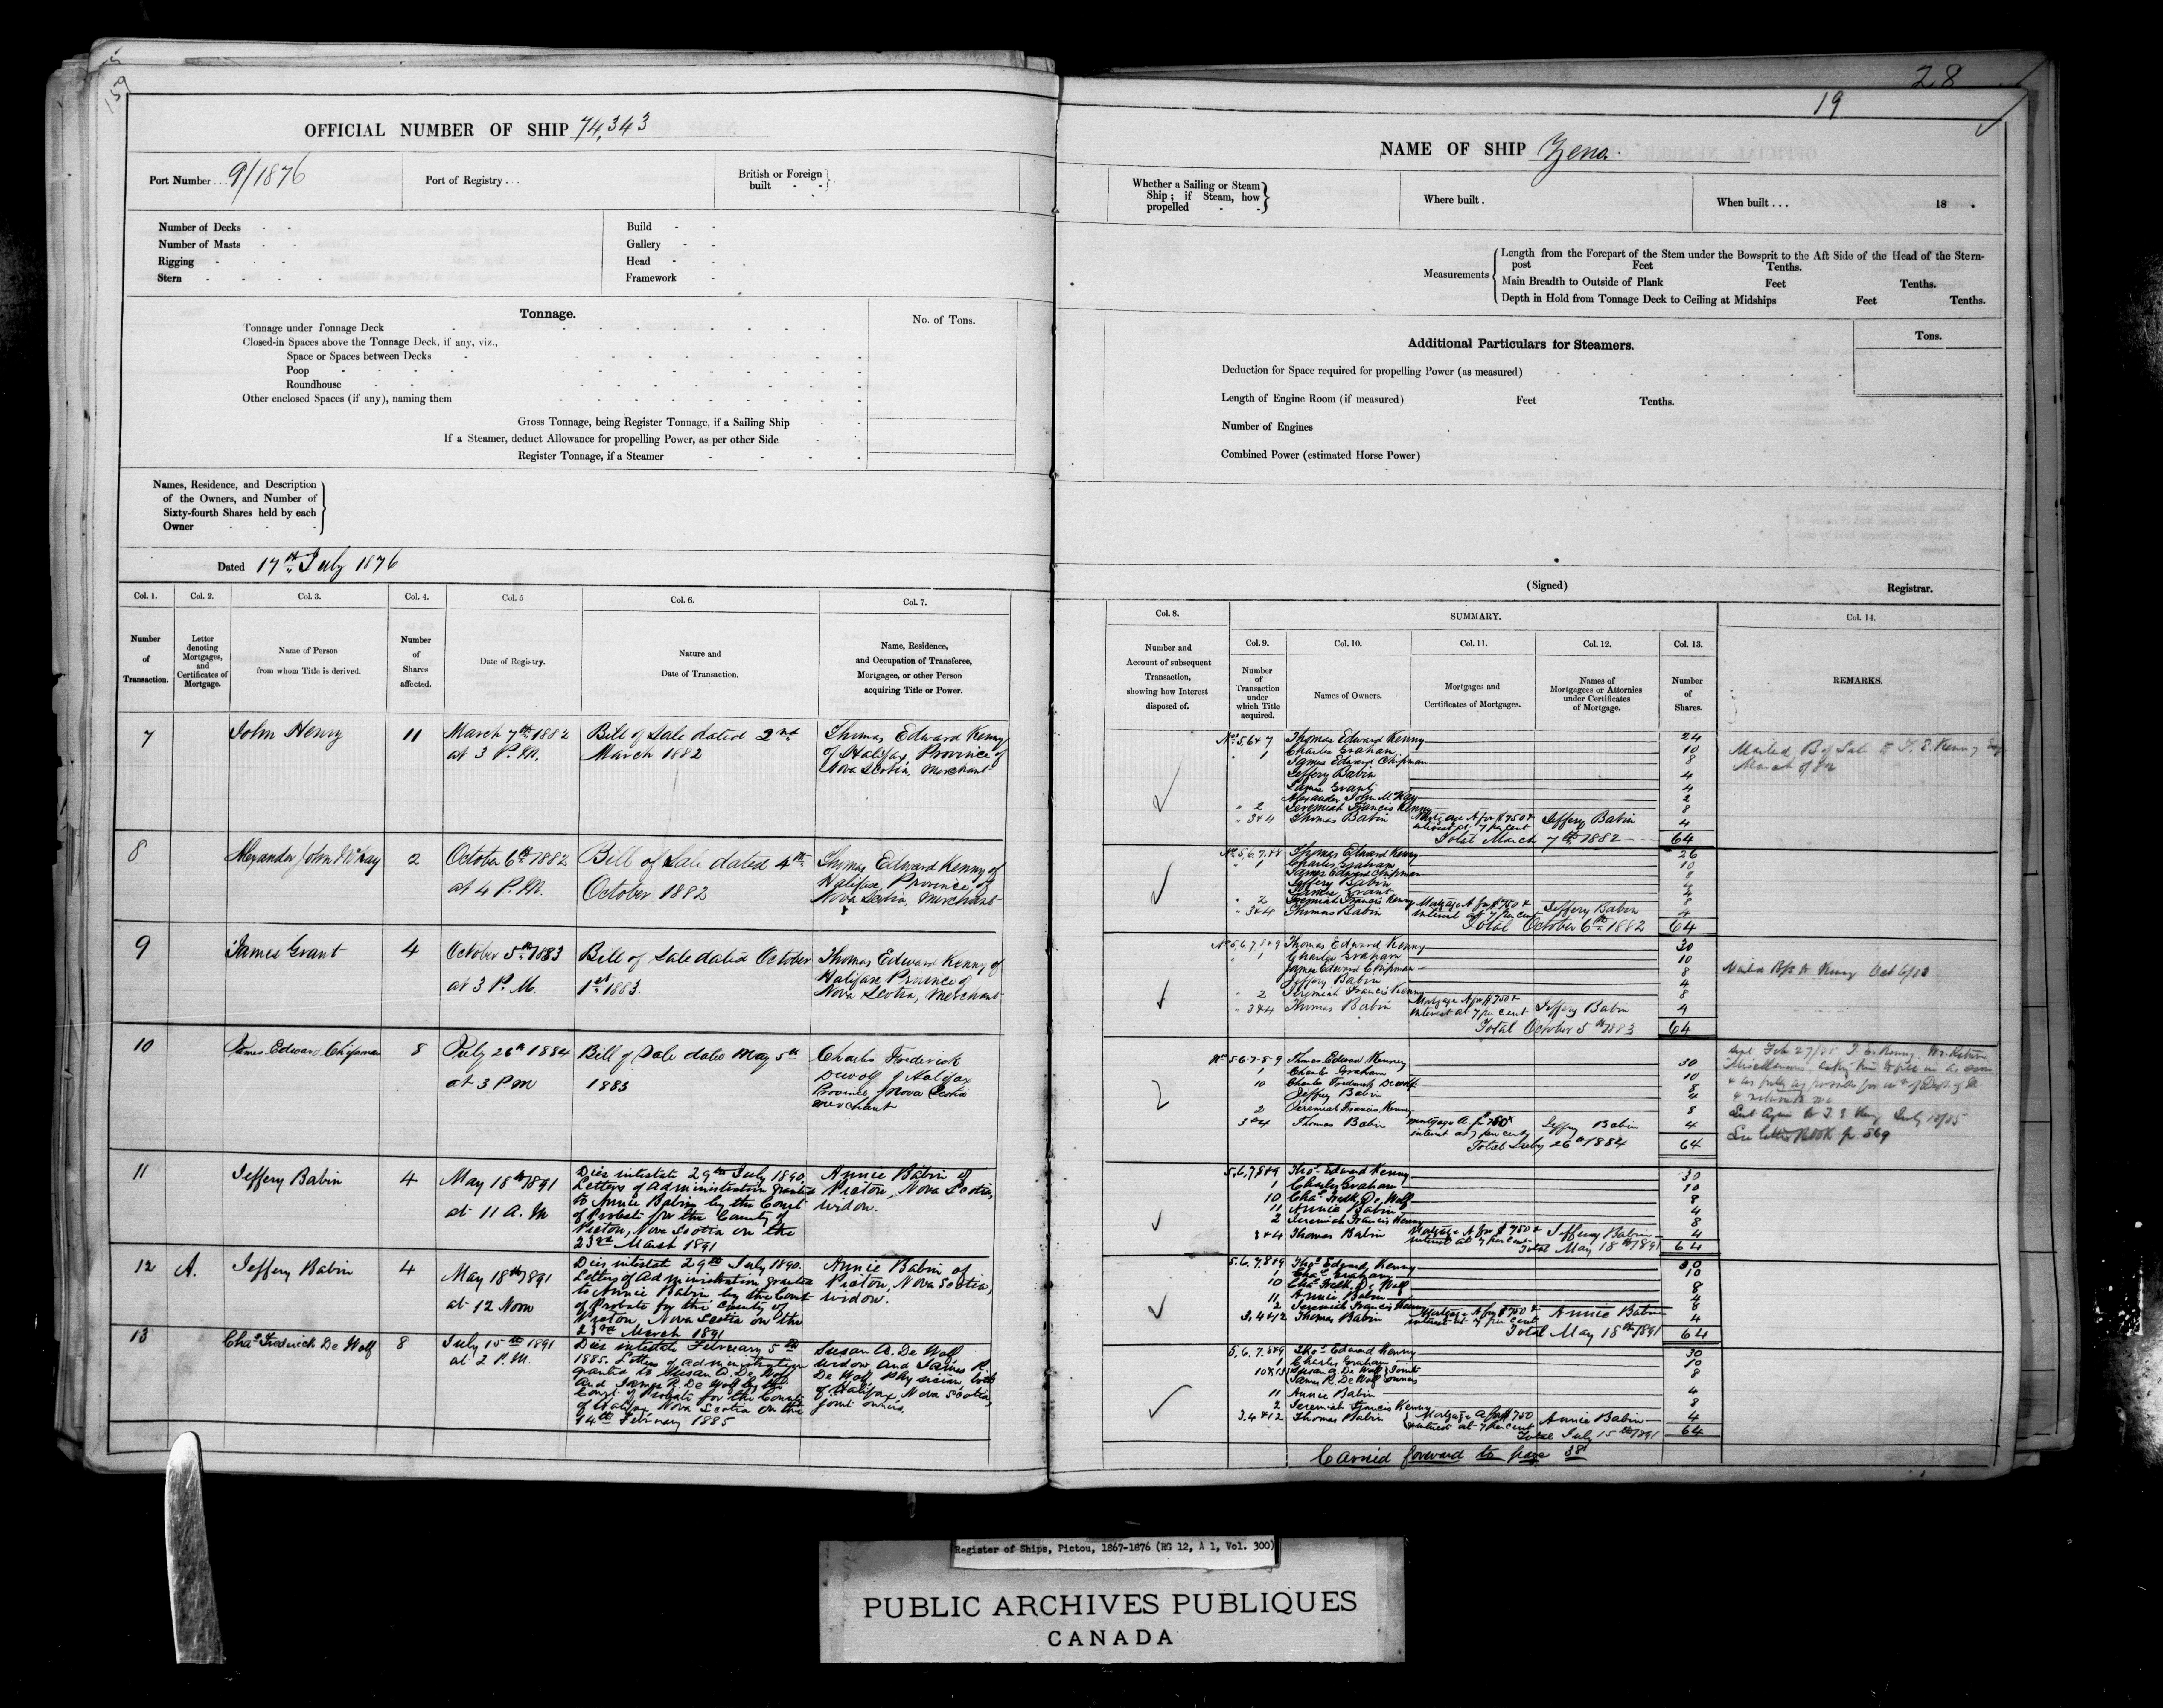 159
28
19
OFFICIAL NUMBER OF SHIP 74,343
Port Number... 9/1876
Port of Registry...
British or Foreign built
Number of Decks
Number of Masts
Rigging
Stern
Build
Gallery
Head
Framework
Tonnage.
No. of Tons.
Tonnage under Tonnage Deck
Closed-in Spaces above the Tonnage Deck, if any, viz.,
Space or Spaces between Decks
Poop
Roundhouse
Other enclosed Spaces (if any), naming them
Gross Tonnage, being Register Tonnage, if a Sailing Ship
If a Steamer, deduct Allowance for propelling Power, as per other Side
Register Tonnage, if a Steamer
Names, Residence, and Description
of the Owners, and Number of
Sixty-fourth Shares held by each
Owner
Dated 17th July 1876
Col. 1. Col. 2. Col. 3. Col. 4. Col. 5 Col. 6. Col. 7.
Number of Transaction.
Letter denoting Mortgages, and Certificates of Mortgage.
Name of Person from whom Title is derived.
Number of Shares affected.
Date of Registry.
Nature and Date of Transaction.
Name, Residence, and Occupation of Transferee, Mortgagee, or other Person acquiring Title or Power.
7 John Henry 11 March 7th 1882 Bill of Sale dated 2nd Thomas Edward Kenny
at 3 P.M. March 1882 of Halifax Province of
Nova Scotia, Merchant
8 Alexander John McKay 2 October 6th 1882 Bill of Sale dated 4th Thomas Edward Kenny of
at 4 P.M. October 1882 Halifax, Province of
Nova Scotia, Merchant
9 James Grant 4 October 5th 1883 Bill of Sale dated October Thomas Edward Kenny of
at 3 P.M. 1st 1883. Halifax Province of
Nova Scotia, Merchant
10 James Edward Chipman 8 July 26th 1884 Bill of Sale dated May 5th Charles Frederick
at 3 PM 1883 Dewolf of Halifax
Province of Nova Scotia
merchant
11 Jeffery Babin 4 May 18th 1891 Dies intestate 29th July 1890. Annie Babin of
at 11 A.M Letters of Administration granted Pictou, Nova Scotia,
to Annie Babin by the Court widow.
of Probate for the County of
Pictou, Nova Scotia on the
23rd March 1891
12 A. Jeffery Babin 4 May 18th 1891 Dies intestate 29th July 1890. Annie Babin of
at 12 Noon Letters of Administration granted Pictou, Nova Scotia,
to Annie Babin by the Court widow.
of Probate for the County of
Pictou, Nova Scotia on the
23rd March 1891
13 Chas Frederick De Wolf 8 July 15th 1891 Dies intestate February 5th Susan A. De Wolf
at 2 P.M. 1885. Letters of administration widow and James R.
granted to Susan A. De Wolf De Wolf Physician, both
and James R. De Wolf by the of Halifax, Nova Scotia,
Court of Probate for the County joint owners.
of Halifax Nova Scotia on the
14th February 1885
NAME OF SHIP Zena.
Whether a Sailing or Steam Ship; if Steam, how propelled
Where built.
When built... 18 .
Measurements
Length from the Forepart of the Stem under the Bowsprit to the Aft Side of the Head of the Stern-
post Feet Tenths.
Main Breadth to Outside of Plank Feet Tenths.
Depth in Hold from Tonnage Deck to Ceiling at Midships Feet Tenths.
Additional Particulars for Steamers.
Tons.
Deduction for Space required for propelling Power (as measured)
Length of Engine Room (if measured) Feet Tenths.
Number of Engines
Combined Power (estimated Horse Power)
(Signed) Registrar.
Col. 8. SUMMARY. Col. 14.
Col. 9. Col. 10. Col. 11. Col. 12. Col. 13.
Number and Account of subsequent Transaction, showing how Interest disposed of.
Number of Transaction under which Title acquired.
Names of Owners.
Mortgages and Certificates of Mortgages.
Names of Mortgagees or Attornies under Certificates of Mortgage.
Number of Shares.
REMARKS.
Nos 5,6+7 Thomas Edward Kenny 24
" 1 Charles Graham 10
James Edward Chipman 8
Jeffery Babin 4
James Grant 4
Alexander John McKay 2
" 2 Jeremiah Francis Kenny 8
" 3+4 Thomas Babin Mortgage A for $750 + Jeffery Babin 4
interest at 7 per cent
Total March 7th 1882 64
Mailed B of Sale to T. E. Kenny Esq
March 9/82
Nos 5,6,7,+8 Thomas Edward Kenny 26
" 1 Charles Graham 10
James Edward Chipman 8
Jeffery Babin 4
James Grant 4
" 2 Jeremiah Francis Kenny 8
" 3+4 Thomas Babin Mortgage A for $750 + Jeffery Babin 4
interest at 7 per cent
Total October 6th 1882 64
Nos 5,6,7,8+9 Thomas Edward Kenny 30
" 1 Charles Graham 10
James Edward Chipman 8
Jeffery Babin 4
" 2 Jeremiah Francis Kenny 8
" 3+4 Thomas Babin Mortgage A for $750 + Jeffery Babin 4
interest at 7 per cent.
Total October 5th 1883 64
Mailed B/S to Kenny Oct 6/83
Nos 5-6-7-8-9 Thomas Edward Kenney 30
1 Charles Graham 10
10 Charles Frederick DeWolf 8
Jeffery Babin 4
2 Jeremiah Francis Kenny 8
3+4 Thomas Babin mortgage A for $750 + Jeffery Babin 4
interest at 7 per cent
Total July 26th 1884 64
Feb 27/85 T. E. Kenny
Sent again to T. E. Kenny July 18/85
See letter Book p. 569
5,6,7,8+9 Thos Edward Kenny 30
1 Charles Graham 10
10 Chas Fredk De Wolf 8
11 Annie Babin 4
2 Jeremiah Francis Kenny 8
3+4 Thomas Babin Mortgage A for $750 + Jeffery Babin 4
interest at 7 per cent.
Total May 18th 1891 64
5,6,7,8+9 Thos Edward Kenny 30
1 Chas Graham 10
10 Chas Fredk De Wolf 8
11 Annie Babin 4
2 Jeremiah Francis Kenny 8
3,4+12 Thomas Babin Mortgage A for $750 + Annie Babin 4
interest at 7 per cent
Total May 18th 1891 64
5,6,7,8+9 Thos Edward Kenny 30
1 Charles Graham 10
10+13 Susan A. De Wolf Joint 8
James R. De Wolf owners
11 Annie Babin 4
2 Jeremiah Francis Kenny 8
3,4+12 Thomas Babin Mortgage A for $750 Annie Babin 4
+ interest at 7 per cent
Total July 15th 1891 64
Carried forward to page 38
Register of Ships, Pictou, 1867-1876 (RG 12, A 1, Vol. 300)
PUBLIC ARCHIVES PUBLIQUES
CANADA